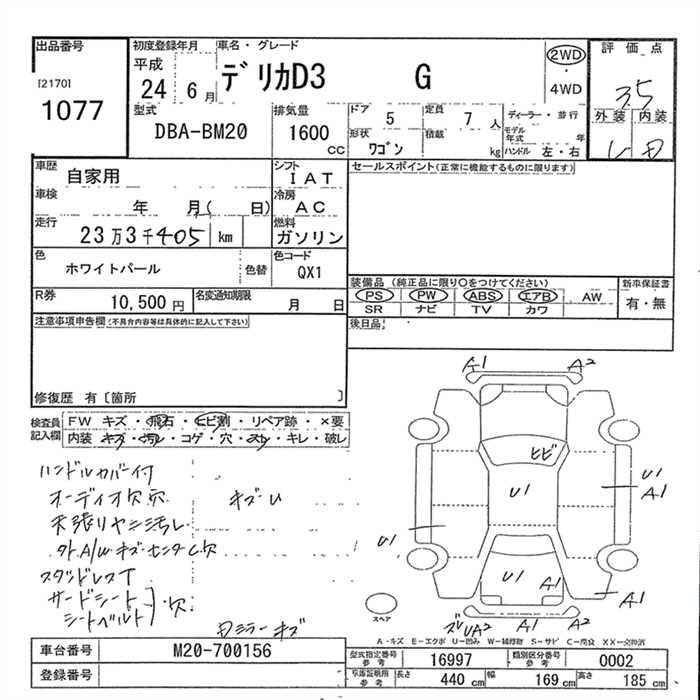 出品番号
[2170]
1077
初度登録年月
平成
24 6月
車名・グレード
デリカD3 G
2WD
・
4WD
評価点
3.5
外装 内装
型式
DBA-BM20
排気量
1600
CC
ドア 5
形状 ワゴン
定員 7 人
積載 kg
ディーラー・並行
モデル年式 年
ハンドル 左・右
車歴 自家用
車検 年 月( 日)
走行 23万3千405 km
シフト IAT
冷房 AC
燃料 ガソリン
セールスポイント(正常に機能するものに限ります)
色 ホワイトパール 色替
色コード QX1
R券 10,500円
名変通知期限 月 日
装備品(純正品に限り○をつけてください)
PS PW ABS エアB AW
SR ナビ TV カワ
新車保証書
有・無
後日品
注意事項申告欄(不具合内容等は具体的に記入して下さい)
修復歴 有[箇所 ]
検査員記入欄
FW キズ・飛石・ヒビ割・リペア跡・×要
内装 キズ・汚レ・コゲ・穴・スレ・キレ・破レ
ハンドルカバー付
オーディオ欠穴 キズU
天張りヤニ汚レ
外A/WキズセンターC欠
スタッドレスT
サードシート
シートベルト 欠
ミラーキズ
A1 A2
ヒビ
U1
U1
A1
U1
U1 A1
A1
ズレ UA2 A1
スペア
A-キズ E-エクボ U-凹み W-補修跡 S-サビ C-腐食 XX-交換済
車台番号 M20-700156
登録番号
型式指定番号 参考 16997
類別区分番号 参考 0002
車庫証明用 参考 長さ 440 cm 幅 169 cm 高さ 185 cm